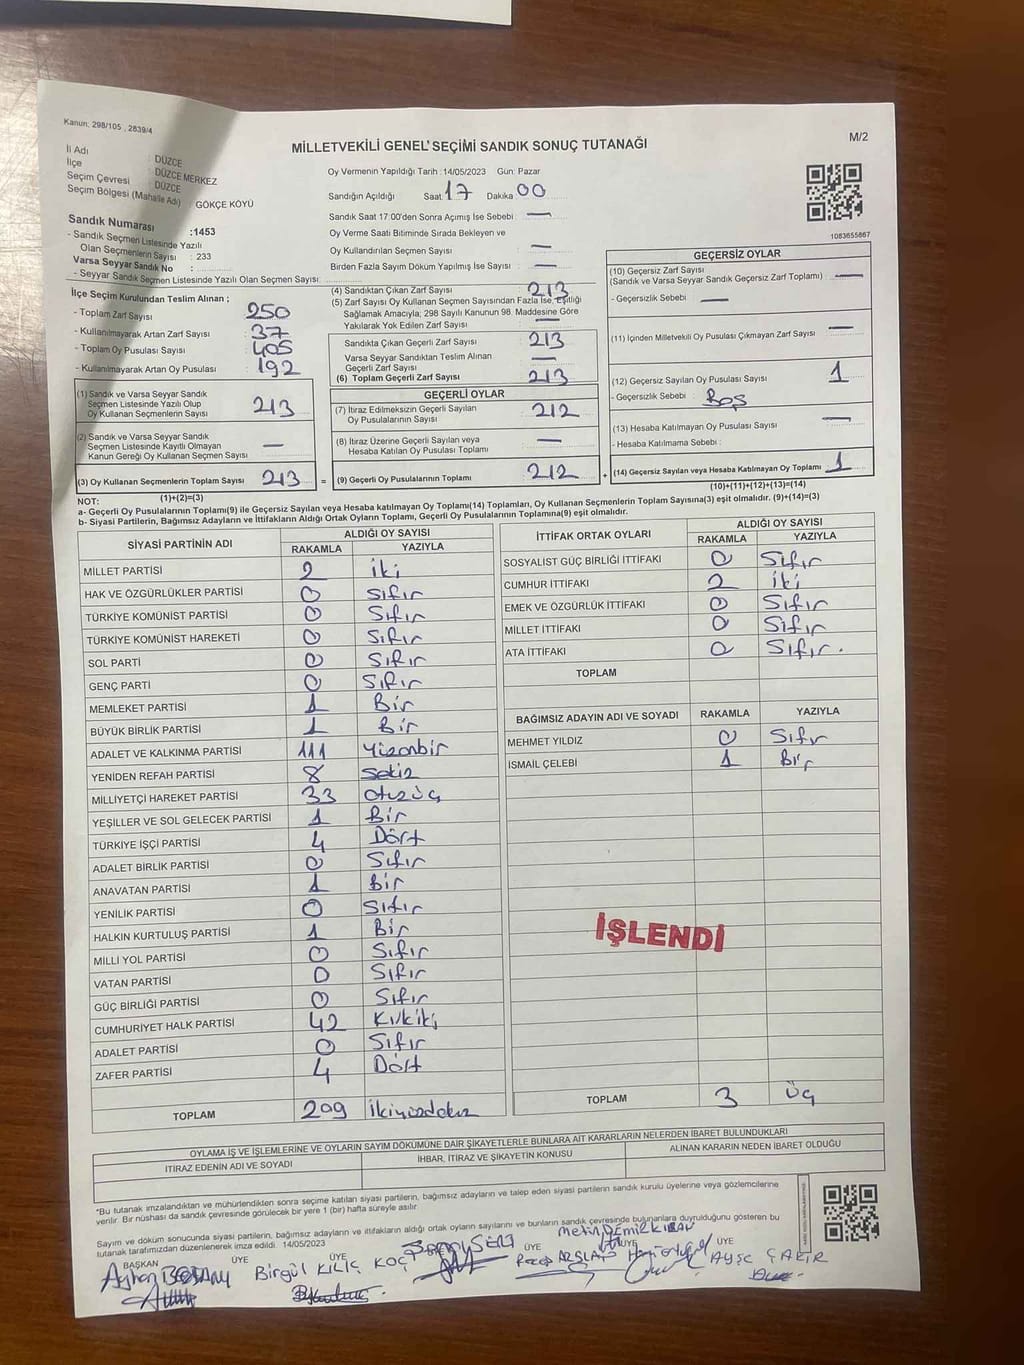 Kanun: 298/105 , 2839/4
M/2
MİLLETVEKİLİ GENEL SEÇİMİ SANDIK SONUÇ TUTANAĞI
İl Adı : DÜZCE
İlçe : DÜZCE MERKEZ
Seçim Çevresi : DÜZCE
Seçim Bölgesi (Mahalle Adı) : GÖKÇE KÖYÜ
Sandık Numarası :1453
- Sandık Seçmen Listesinde Yazılı
Olan Seçmenlerin Sayısı : 233
Varsa Seyyar Sandık No :
- Seyyar Sandık Seçmen Listesinde Yazılı Olan Seçmen Sayısı:
Oy Vermenin Yapıldığı Tarih : 14/05/2023 Gün: Pazar
Sandığın Açıldığı Saat 17 Dakika 00
Sandık Saat 17:00'den Sonra Açımış İse Sebebi : —
Oy Verme Saati Bitiminde Sırada Bekleyen ve
Oy Kullandırılan Seçmen Sayısı —
Birden Fazla Sayım Döküm Yapılmış İse Sayısı —
1083655867
İlçe Seçim Kurulundan Teslim Alınan ;
- Toplam Zarf Sayısı : 250
- Kullanılmayarak Artan Zarf Sayısı : 37
- Toplam Oy Pusulası Sayısı : 405
- Kullanılmayarak Artan Oy Pusulası : 192
(1) Sandık ve Varsa Seyyar Sandık
Seçmen Listesinde Yazılı Olup
Oy Kullanan Seçmenlerin Sayısı 213
(2) Sandık ve Varsa Seyyar Sandık
Seçmen Listesinde Kayıtlı Olmayan
Kanun Gereği Oy Kullanan Seçmen Sayısı —
(3) Oy Kullanan Seçmenlerin Toplam Sayısı 213
(1)+(2)=(3)
(4) Sandıktan Çıkan Zarf Sayısı 213
(5) Zarf Sayısı Oy Kullanan Seçmen Sayısından Fazla İse, Eşitliği
Sağlamak Amacıyla; 298 Sayılı Kanunun 98. Maddesine Göre
Yakılarak Yok Edilen Zarf Sayısı —
Sandıkta Çıkan Geçerli Zarf Sayısı 213
Varsa Seyyar Sandıktan Teslim Alınan
Geçerli Zarf Sayısı —
(6) Toplam Geçerli Zarf Sayısı 213
GEÇERLİ OYLAR
(7) İtiraz Edilmeksizin Geçerli Sayılan
Oy Pusulalarının Sayısı 212
(8) İtiraz Üzerine Geçerli Sayılan veya
Hesaba Katılan Oy Pusulası Toplamı —
= (9) Geçerli Oy Pusulalarının Toplamı 212 +
GEÇERSİZ OYLAR
(10) Geçersiz Zarf Sayısı
(Sandık ve Varsa Seyyar Sandık Geçersiz Zarf Toplamı) —
- Geçersizlik Sebebi : —
(11) İçinden Milletvekili Oy Pusulası Çıkmayan Zarf Sayısı —
(12) Geçersiz Sayılan Oy Pusulası Sayısı 1
- Geçersizlik Sebebi : Boş
(13) Hesaba Katılmayan Oy Pusulası Sayısı —
- Hesaba Katılmama Sebebi :
(14) Geçersiz Sayılan veya Hesaba Katılmayan Oy Toplamı 1
(10)+(11)+(12)+(13)=(14)
NOT:
a- Geçerli Oy Pusulalarının Toplamı(9) ile Geçersiz Sayılan veya Hesaba katılmayan Oy Toplamı(14) Toplamları, Oy Kullanan Seçmenlerin Toplam Sayısına(3) eşit olmalıdır. (9)+(14)=(3)
b- Siyasi Partilerin, Bağımsız Adayların ve İttifakların Aldığı Ortak Oyların Toplamı, Geçerli Oy Pusulalarının Toplamına(9) eşit olmalıdır.
SİYASİ PARTİNİN ADI ALDIĞI OY SAYISI
RAKAMLA YAZIYLA
MİLLET PARTİSİ 2 iki
HAK VE ÖZGÜRLÜKLER PARTİSİ 0 Sıfır
TÜRKİYE KOMÜNİST PARTİSİ 0 Sıfır
TÜRKİYE KOMÜNİST HAREKETİ 0 Sıfır
SOL PARTİ 0 Sıfır
GENÇ PARTİ 0 Sıfır
MEMLEKET PARTİSİ 1 Bir
BÜYÜK BİRLİK PARTİSİ 1 Bir
ADALET VE KALKINMA PARTİSİ 111 Yüzonbir
YENİDEN REFAH PARTİSİ 8 Sekiz
MİLLİYETÇİ HAREKET PARTİSİ 33 otuzüç
YEŞİLLER VE SOL GELECEK PARTİSİ 1 Bir
TÜRKİYE İŞÇİ PARTİSİ 4 Dört
ADALET BİRLİK PARTİSİ 0 Sıfır
ANAVATAN PARTİSİ 1 Bir
YENİLİK PARTİSİ 0 Sıfır
HALKIN KURTULUŞ PARTİSİ 1 Bir
MİLLİ YOL PARTİSİ 0 Sıfır
VATAN PARTİSİ 0 Sıfır
GÜÇ BİRLİĞİ PARTİSİ 0 Sıfır
CUMHURİYET HALK PARTİSİ 42 Kırkiki
ADALET PARTİSİ 0 Sıfır
ZAFER PARTİSİ 4 Dört
TOPLAM 209 ikiyüzdokuz
İTTİFAK ORTAK OYLARI ALDIĞI OY SAYISI
RAKAMLA YAZIYLA
SOSYALİST GÜÇ BİRLİĞİ İTTİFAKI 0 Sıfır
CUMHUR İTTİFAKI 2 iki
EMEK VE ÖZGÜRLÜK İTTİFAKI 0 Sıfır
MİLLET İTTİFAKI 0 Sıfır
ATA İTTİFAKI 0 Sıfır.
TOPLAM
BAĞIMSIZ ADAYIN ADI VE SOYADI RAKAMLA YAZIYLA
MEHMET YILDIZ 0 Sıfır
İSMAİL ÇELEBİ 1 Bir
İŞLENDİ
TOPLAM 3 üç
OYLAMA İŞ VE İŞLEMLERİNE VE OYLARIN SAYIM DÖKÜMÜNE DAİR ŞİKAYETLERLE BUNLARA AİT KARARLARIN NELERDEN İBARET BULUNDUKLARI
İTİRAZ EDENİN ADI VE SOYADI İHBAR, İTİRAZ VE ŞİKAYETİN KONUSU ALINAN KARARIN NEDEN İBARET OLDUĞU
*Bu tutanak imzalandıktan ve mühürlendikten sonra seçime katılan siyasi partilerin, bağımsız adayların ve talep eden siyasi partilerin sandık kurulu üyelerine veya gözlemcilerine
verilir. Bir nüshası da sandık çevresinde görülecek bir yere 1 (bir) hafta süreyle asılır.
Sayım ve döküm sonucunda siyasi partilerin, bağımsız adayların ve ittifakların aldığı ortak oyların sayılarını ve bunların sandık çevresinde bulunanlara duyrulduğunu gösteren bu
tutanak tarafımızdan düzenlenerek imza edildi. 14/05/2023
BAŞKAN ÜYE ÜYE ÜYE ÜYE ÜYE
Metin DEMİRKIRAN
Ayhan Birgül KILIÇ KOÇ SERT Recep ARSLAN Ayşe ÇAKIR